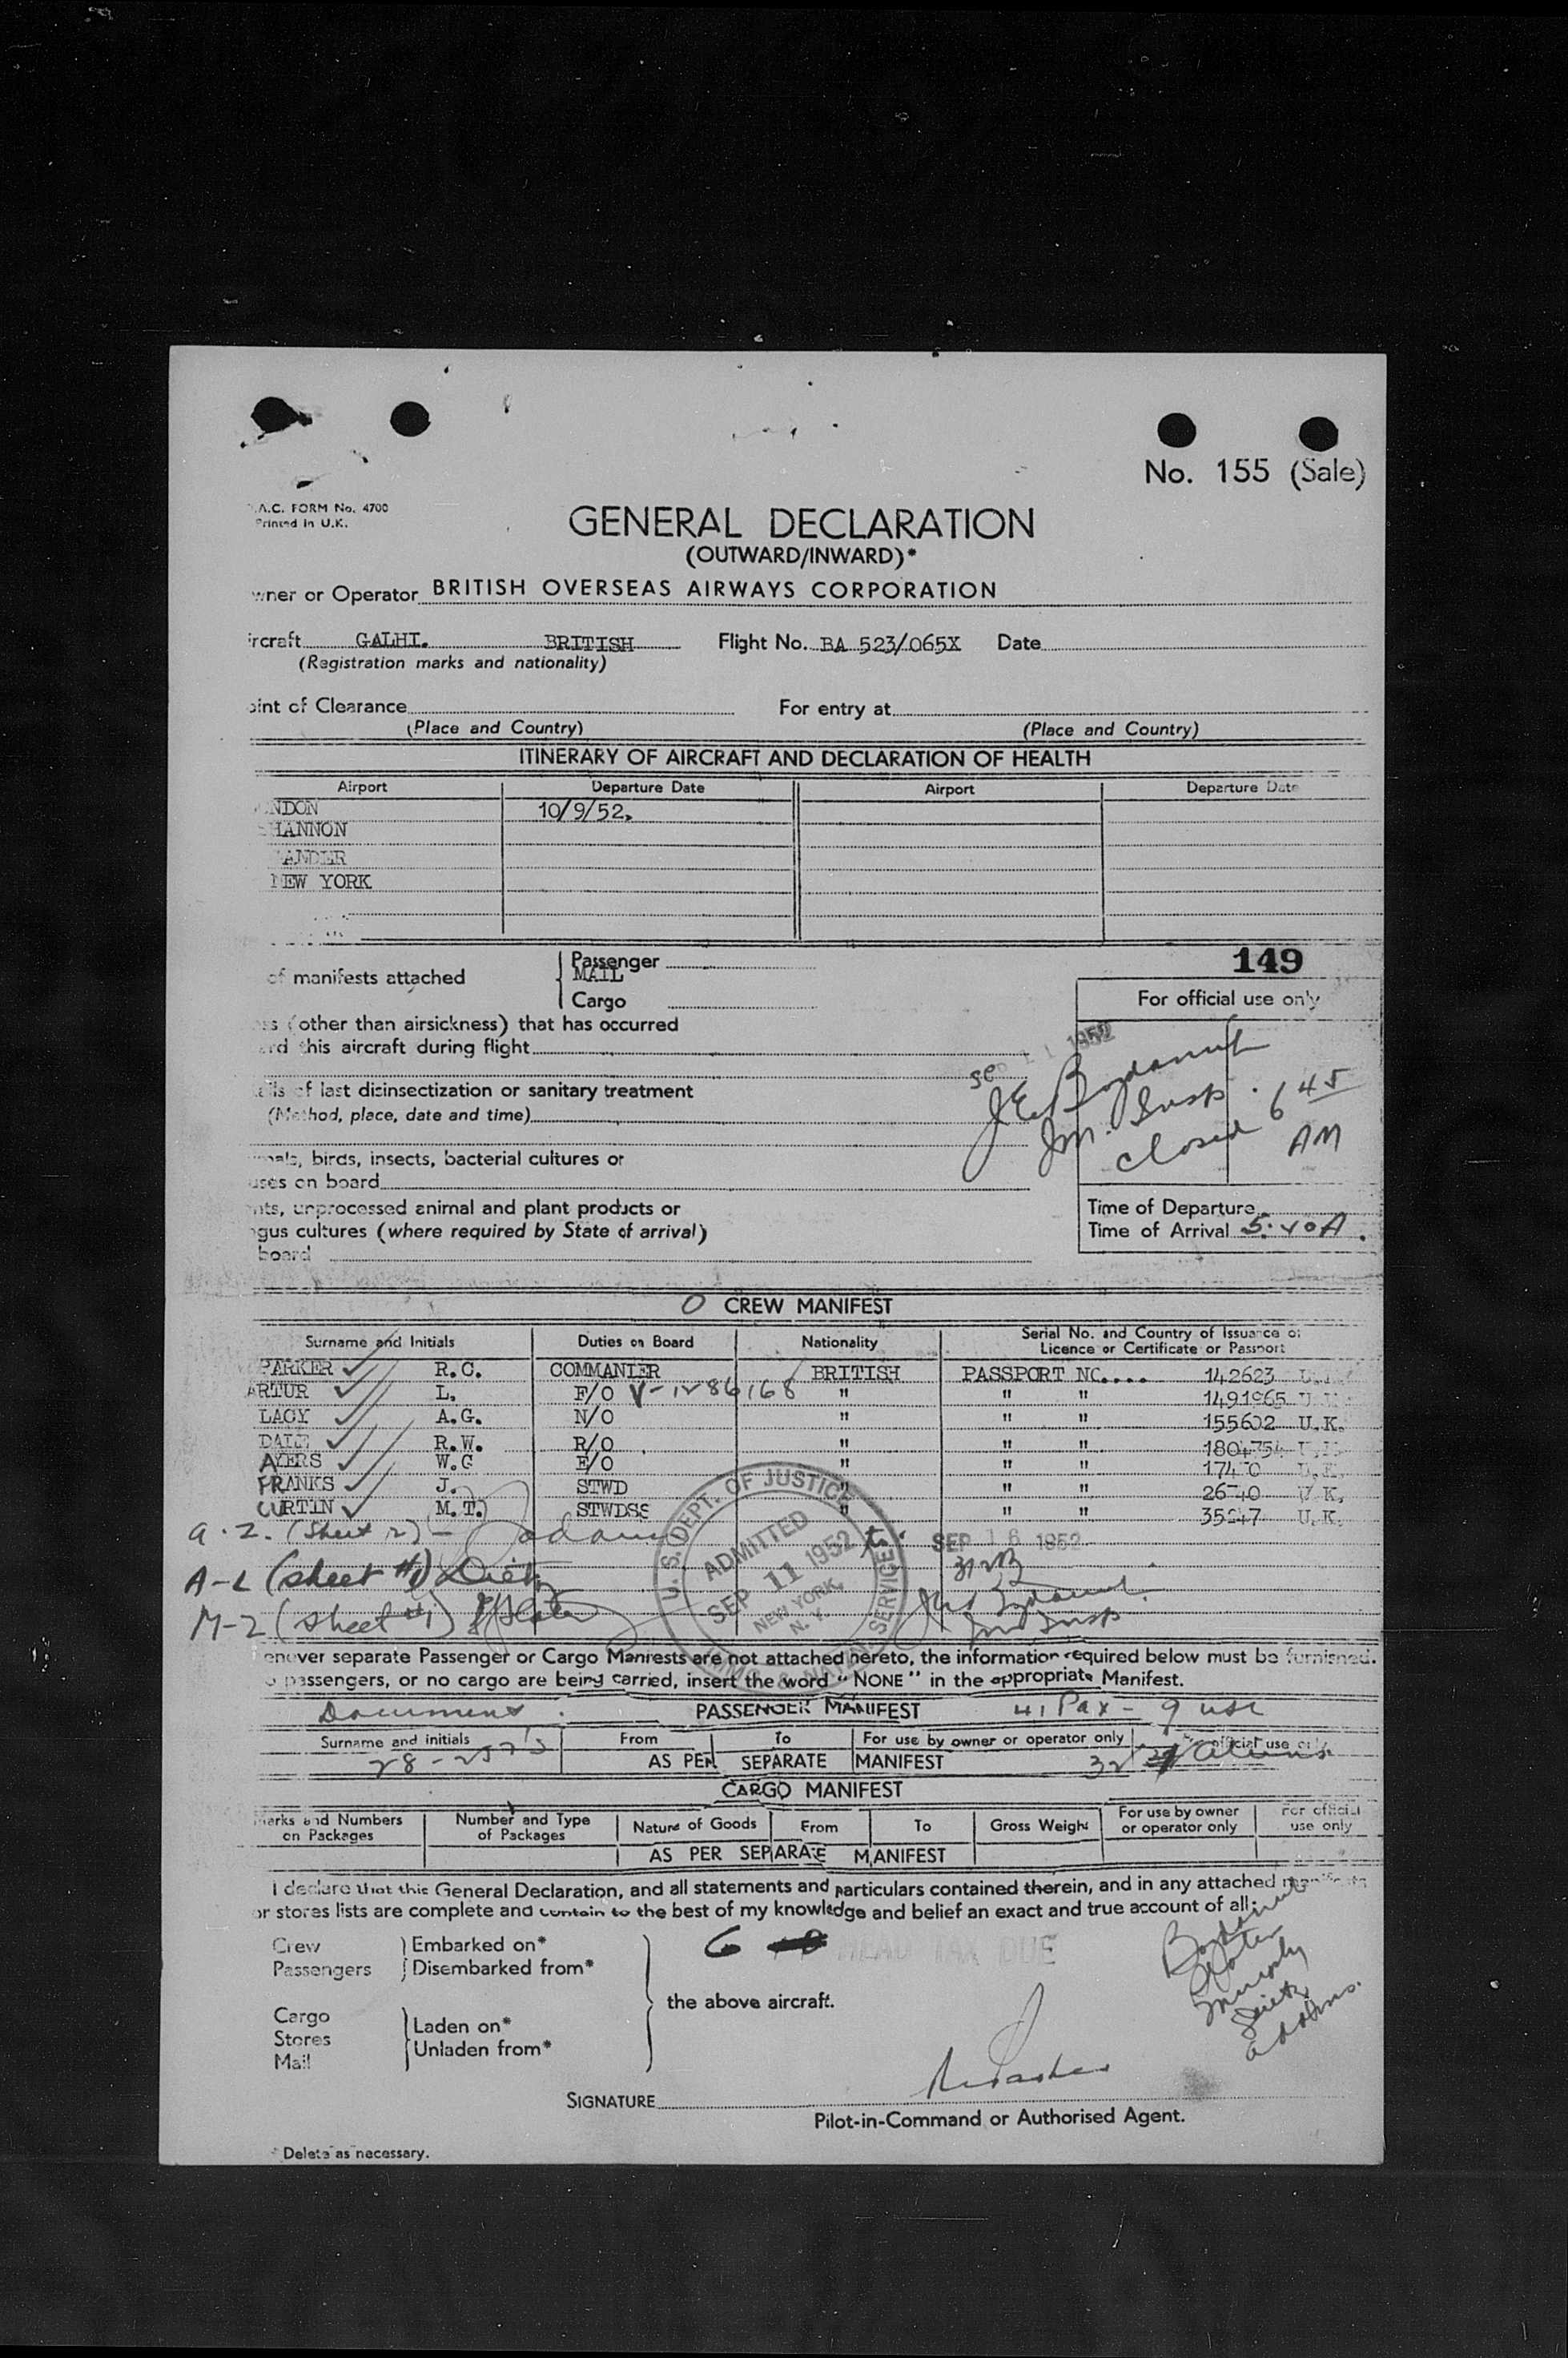 No. 155 (Sale)
.A.C. FORM No. 4700
Printed in U.K.
GENERAL DECLARATION
(OUTWARD/INWARD)*
wner or Operator BRITISH OVERSEAS AIRWAYS CORPORATION
ircraft GALHI. BRITISH Flight No. BA 523/065X Date
(Registration marks and nationality)
oint of Clearance For entry at
(Place and Country) (Place and Country)
ITINERARY OF AIRCRAFT AND DECLARATION OF HEALTH
Airport Departure Date Airport Departure Date
NDON 10/9/52.
HANNON
ANDER
NEW YORK
149
of manifests attached Passenger
MAIL
Cargo
For official use only
ss (other than airsickness) that has occurred
rd this aircraft during flight
SEP 11 1952
ils of last disinsectization or sanitary treatment
(Method, place, date and time)
Im. Insp.
closed 6 45
AM
mals, birds, insects, bacterial cultures or
uses on board
nts, unprocessed animal and plant products or
ngus cultures (where required by State of arrival)
board
Time of Departure
Time of Arrival
CREW MANIFEST
Surname and Initials Duties on Board Nationality Serial No. and Country of Issuance of
Licence or Certificate or Passport
PARKER R.C. COMMANDER BRITISH PASSPORT NO.... 142623
ARTUR L. F/O V-1286168 " " " 1491965
LACY A.G. N/O " " " 155602 U.K.
DALE R.W. R/O " " "
AYERS W.G E/O " " " U.K.
FRANKS J. STWD " " " U.K.
CURTIN M.T. STWDSS " " " U.K.
U.S. DEPT. OF JUSTICE
ADMITTED
SEP 11 1952
NEW YORK,
N. Y.
IMMIG. & NATZ. SERVICE
SEP 16 1952
a-z. (Sheet 2) - Adams
A-L (sheet #1) Dietz
M-Z (sheet #1) Slater
enever separate Passenger or Cargo Manifests are not attached hereto, the information required below must be furnished.
o passengers, or no cargo are being carried, insert the word "NONE" in the appropriate Manifest.
PASSENGER MANIFEST 41 Pax - 9 usc
Surname and initials From To For use by owner or operator only For official use only
AS PER SEPARATE MANIFEST
CARGO MANIFEST
Marks and Numbers
on Packages Number and Type
of Packages Nature of Goods From To Gross Weight For use by owner
or operator only For official
use only
AS PER SEPARATE MANIFEST
I declare that this General Declaration, and all statements and particulars contained therein, and in any attached manifests
or stores lists are complete and contain to the best of my knowledge and belief an exact and true account of all:
Crew
Passengers Embarked on*
Disembarked from*
HEAD TAX DUE
the above aircraft.
Cargo
Stores
Mail Laden on*
Unladen from*
Slater
Murphy
Dietz
Adams.
SIGNATURE
Pilot-in-Command or Authorised Agent.
* Delete as necessary.